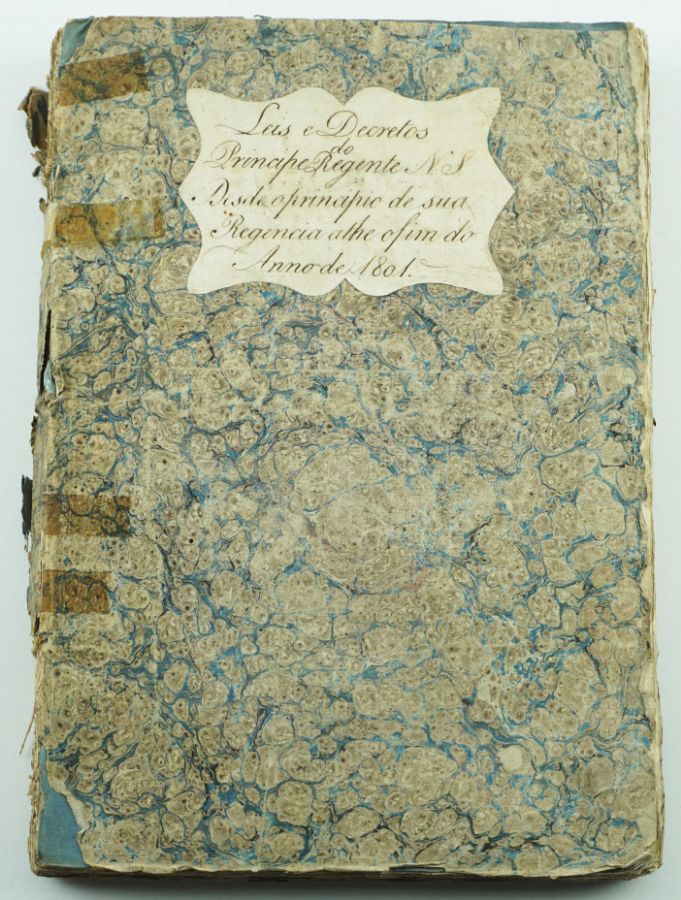 Leis e Decretos
do
Principe Regente N. S
Desde o principio de sua
Regencia athe o fim do
Anno de 1801.